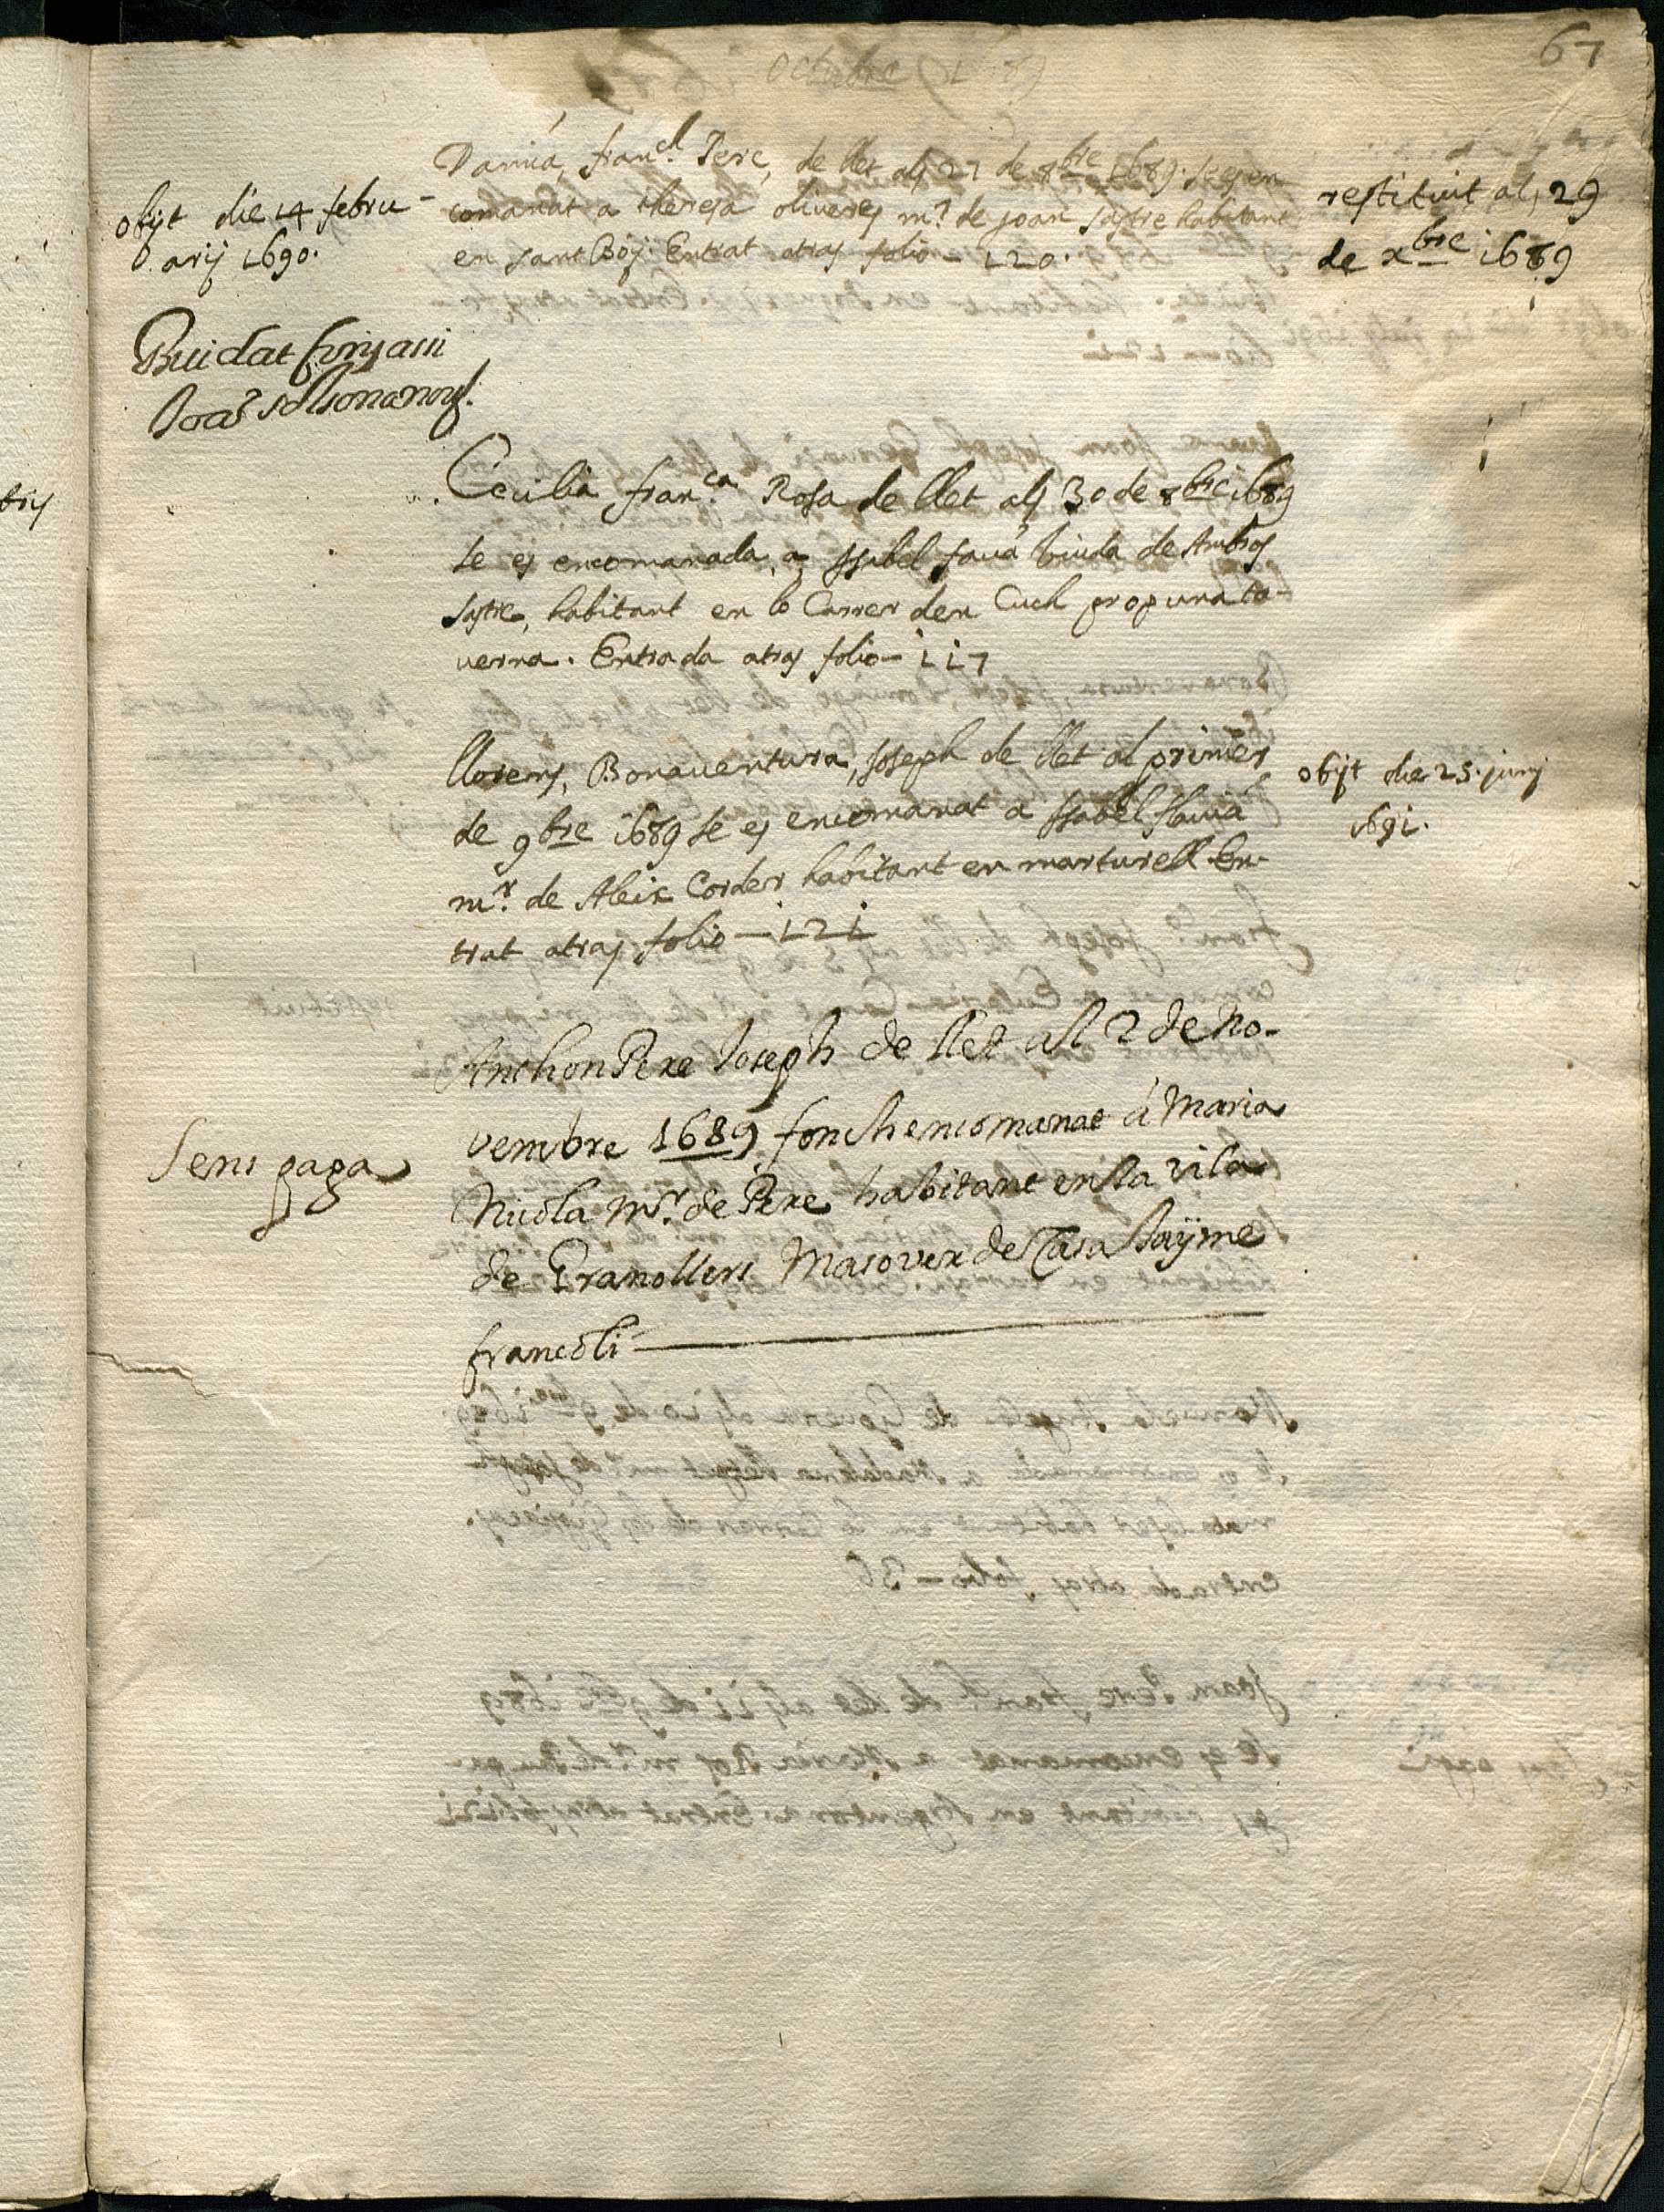 67
Octubre 1689
Damia, fran.ch Pere, de llet als 27 de 8bre 1689. se es en
comanat a theresa oliveres m.r de joan sastre habitant
en sant Boy. Entrat atras folio - 120.
obijt die 14 febru-
arij 1690.
restituit als 29
de xbre 1689
Buidat fins assi
Cecilia fran.ca Rosa de llet als 30 de 8bre 1689
se es encomanada, a Isabel viuda de Ambros
sastre, habitant en lo Carrer den Cuch prop una ta-
verna. Entrada atras folio - 117
llorens, Bonaventura, Joseph de llet al primer
de 9bre 1689 se es encomanat a Isabel
m.r de Aleix Corder habitant en marturell. En-
trat atras folio - 121
obijt die 25. junij
1691.
Anthon Pere Joseph de llet als 2 de No-
vembre 1689 fonch encomanat á Maria
Nicola m.r de Pere habitant en la vila
de Granollers Masover de Casa Jayme
francoli
Sens paga